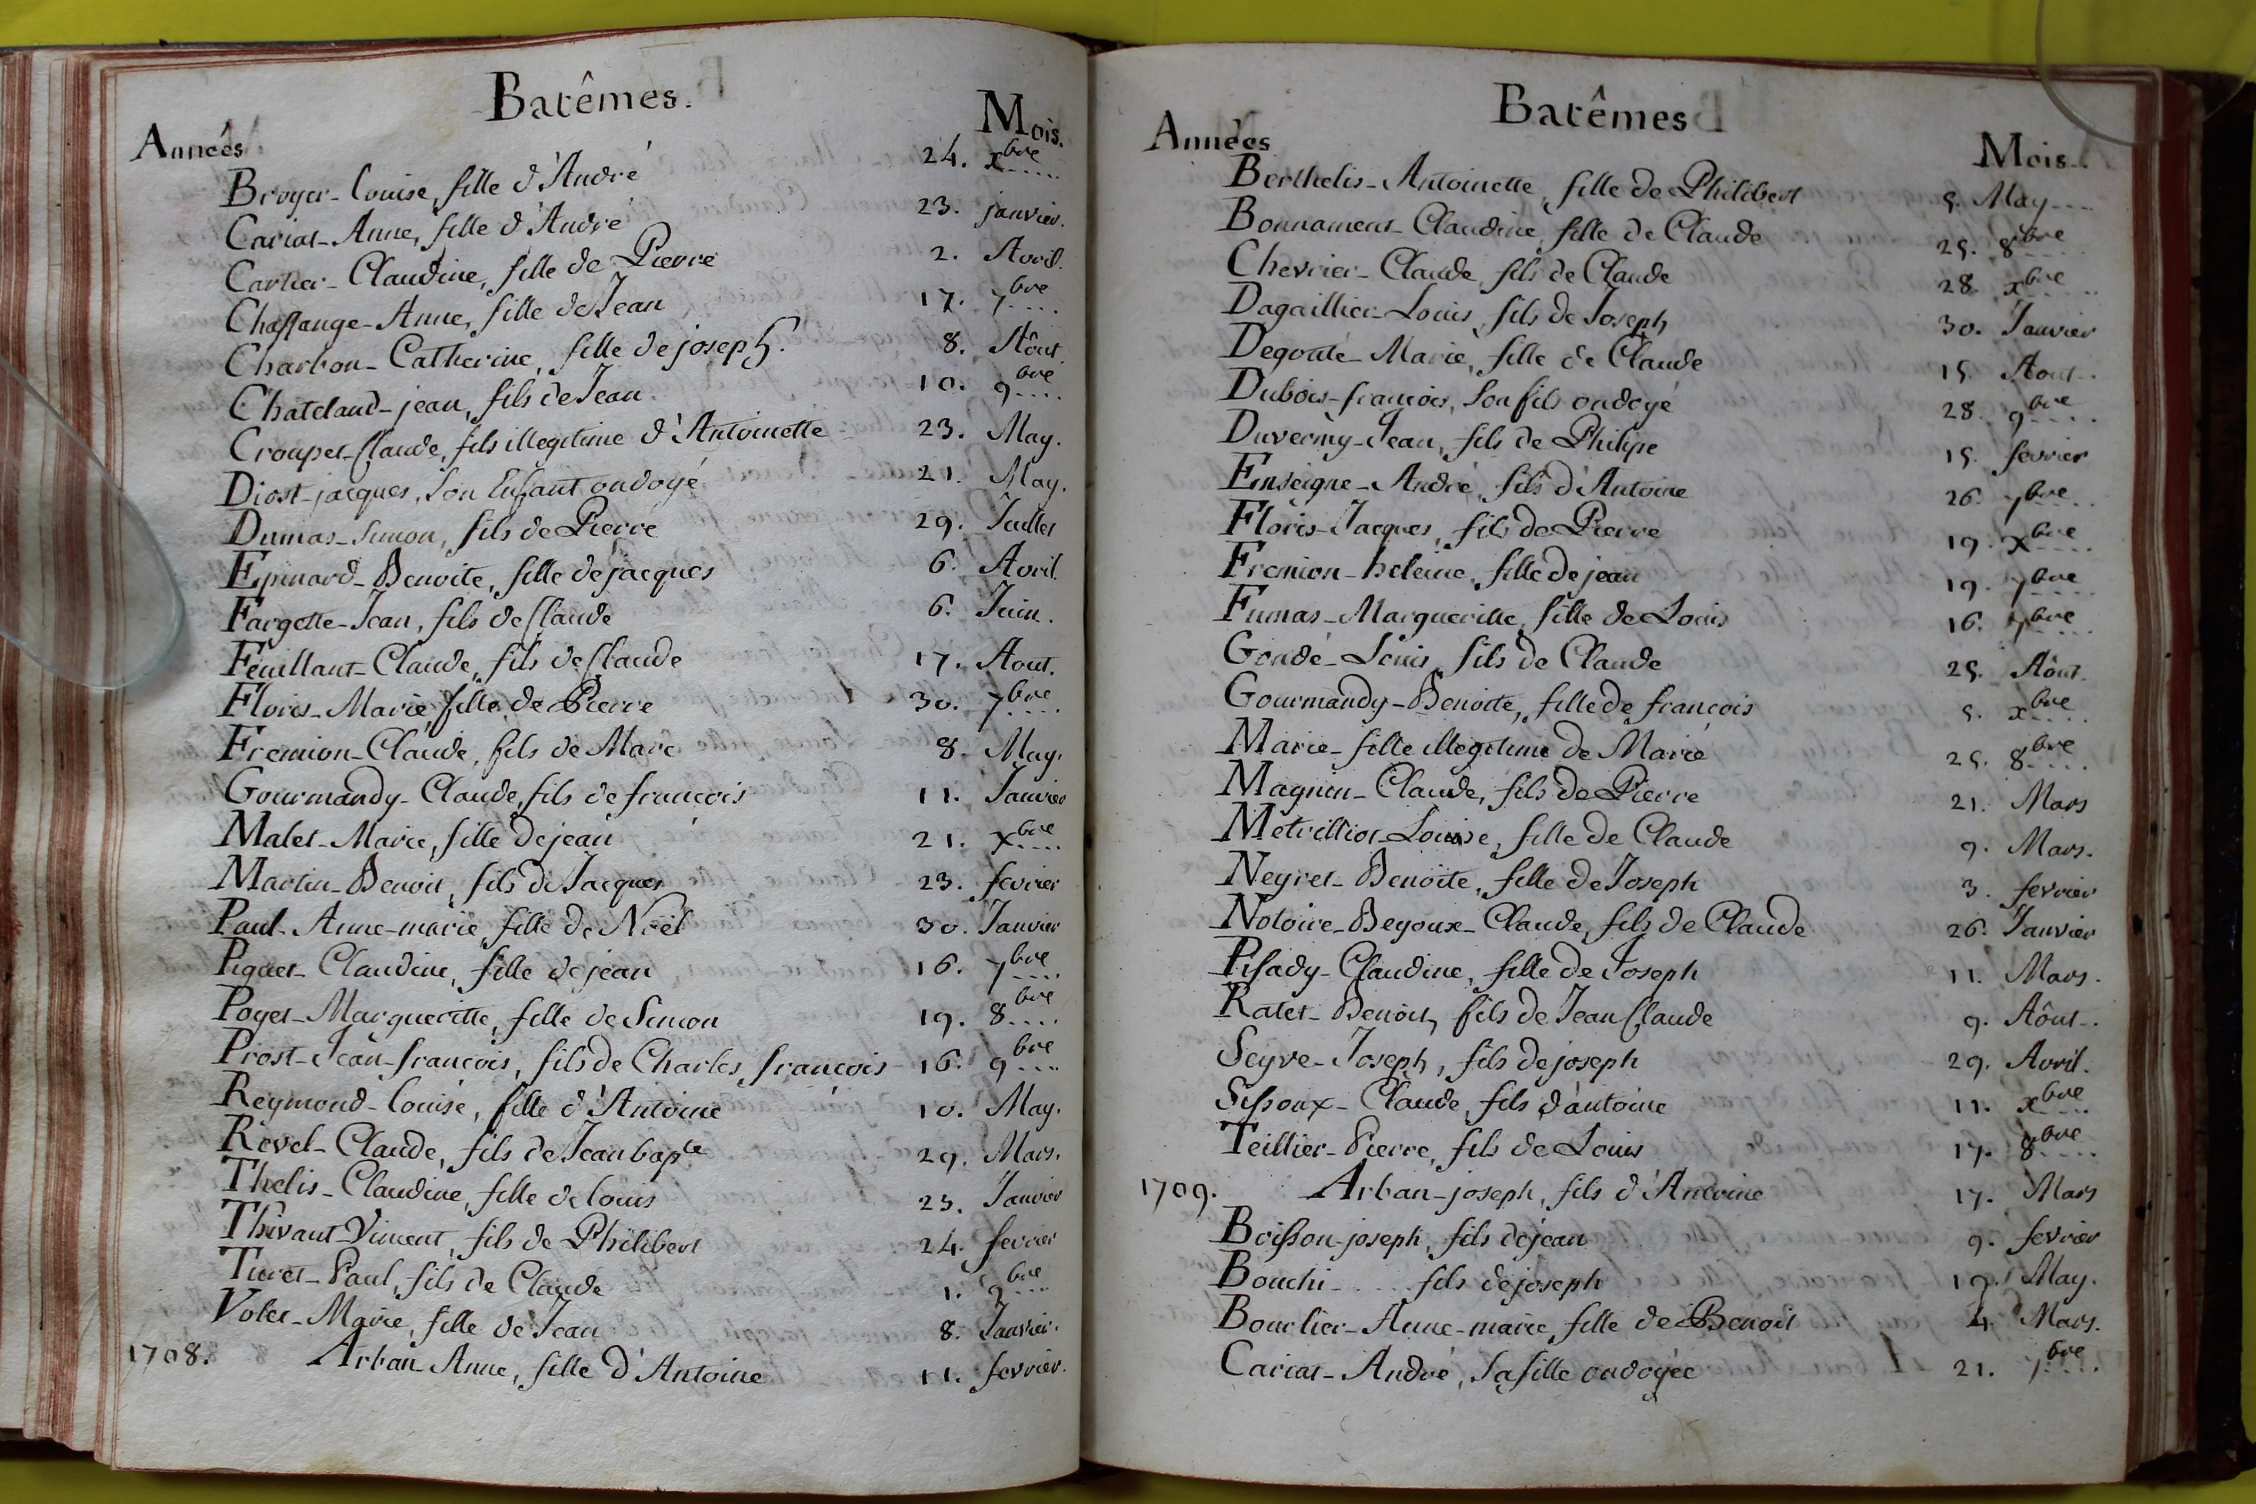 Batêmes.
Années Mois.
Broyer- Louise, fille d'André 24. xbre
Cariat- Anne, fille d'André 23. janvier.
Cartier- Claudine, fille de Pierre 2. Avril.
Chassange- Anne, fille de Jean 17. 7bre
Charbon- Catherine, fille de joseph. 8. Aôut.
Chateland- jean, fils de Jean 10. 9bre
Croupet- Claude, fils illegitime d'Antoinette 23. May.
Diost- jacques, Son Enfant ondoyé 21. May.
Dumas- Simon, fils de Pierre 29. Juillet
Epinard- Benoite, fille de jacques 6. Avril.
Fargette- Jean, fils de Claude 6. Juin.
Feuillant- Claude, fils de Claude 17. Aout.
Floris- Marie, fille de Pierre 30. 7bre
Fremion- Claude, fils de Marc 8. May.
Gourmandy- Claude, fils de francois 11. Janvier
Malet- Marie, fille de jean 21. xbre
Martin- Benoit, fils de Jacques 23. fevrier
Paul- Anne-marie, fille de Noël 30. Janvier
Piquet- Claudine, fille de jean 16. 7bre
Poyet- Margueritte, fille de Simon 19. 8bre
Prost- Jean-francois, fils de Charles francois 16. 9bre
Reymond- Louise, fille d'Antoine 10. May.
Revel- Claude, fils de Jean bapte 29. Mars.
Thelis- Claudine, fille de louis 23. Janvier
Thivant- Vincent, fils de Philibert 24. fevrier
Turet- Paul, fils de Claude 1. bre
Volet- Marie, fille de Jean 8. Janvier.
1708. Arban Anne, fille d'Antoine 11. fevrier.
Batêmes
Années Mois.
Berthelis- Antoinette, fille de Philibert 5. May
Bonnament- Claudine, fille de Claude 25. 8bre
Chevrier- Claude, fils de Claude 28. xbre
Dagaillier- Louis, fils de Joseph 30. Janvier
Degoute- Marie, fille de Claude 15. Aout.
Dubois- francois, Son fils ondoyé 28. 9bre
Duvermy- Jean, fils de Philipe 15. fevrier
Enseigne- André, fils d'Antoine 26. 7bre
Floris- Jacques, fils de Pierre 19. xbre
Fremion- heleine, fille de jean 19. 7bre
Fumas- Margueritte, fille de Louis 16. 7bre
Gondé- Louis, fils de Claude 25. Aôut.
Gourmandy- Benoite, fille de francois 5. xbre
Marie- fille illegitime de Marie 25. 8bre
Magnin- Claude, fils de Pierre 21. Mars
Metrilliot- Louise, fille de Claude 9. Mars.
Neyret- Benoite, fille de Joseph 3. fevrier
Notoire- Begoux- Claude, fils de Claude 26. Janvier
Pisady- Claudine, fille de Joseph 11. Mars.
Ratet- Benoit, fils de Jean Claude 9. Aôut.
Seyve- Joseph, fils de joseph 29. Avril.
Sissoux- Claude, fils d'antoine 11. xbre
Teillier- Pierre, fils de Louis 17. 8bre
1709. Arban- joseph, fils d'Antoine 17. Mars
Boisson- joseph, fils de jean 9. fevrier
Bouchi- .... fils de joseph 19. May.
Bourlier- Anne-marie, fille de Benoit 4. Mars.
Cariat- André, Sa fille ondoyée 21. 7bre